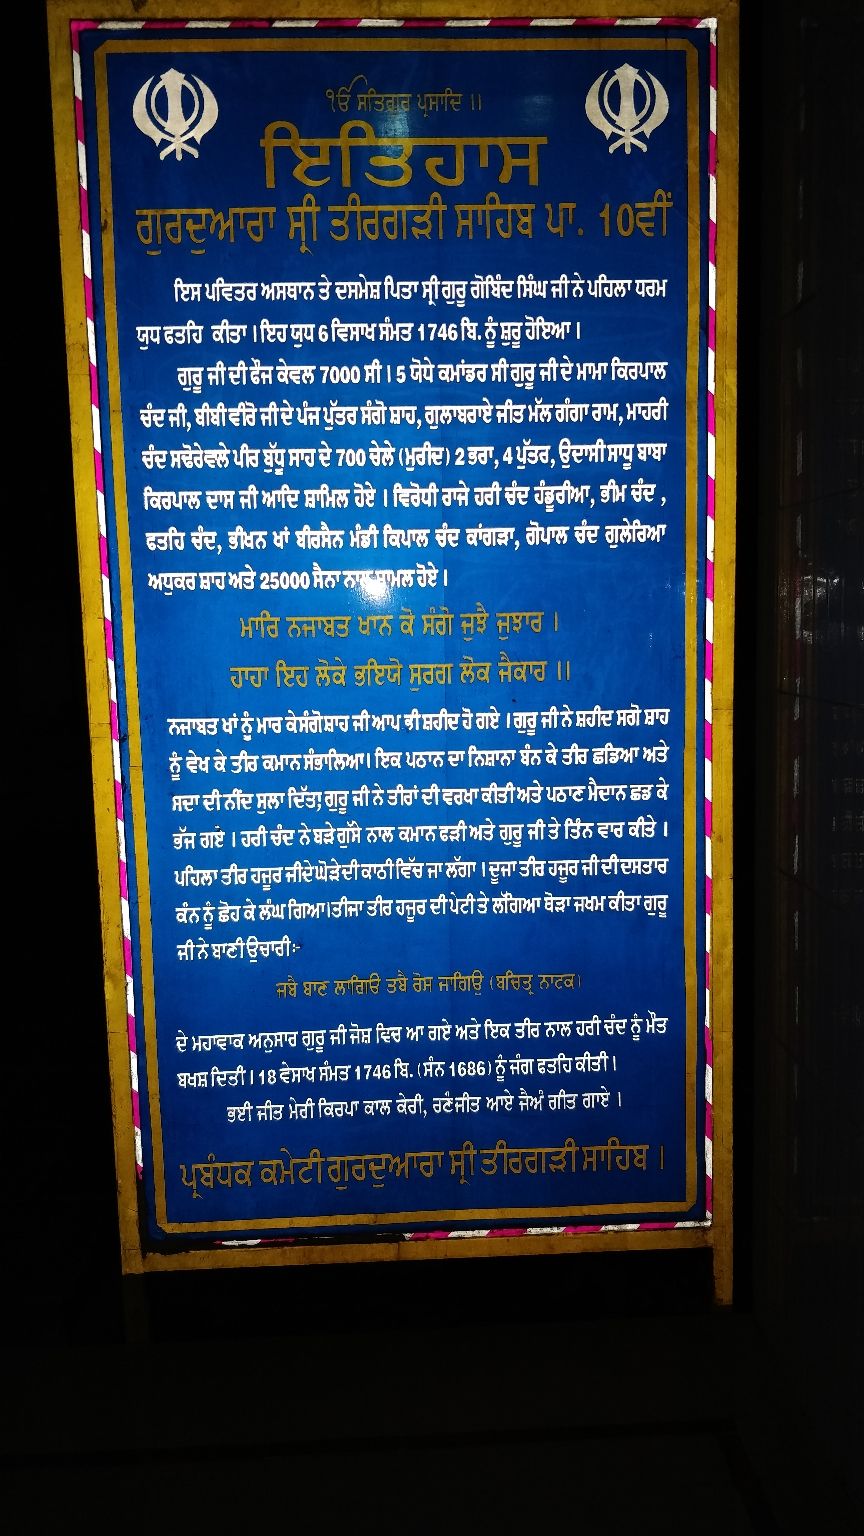 ੴ ਸਤਿਗੁਰ ਪ੍ਰਸਾਦਿ ।।
ਇਤਿਹਾਸ
ਗੁਰਦੁਆਰਾ ਸ੍ਰੀ ਤੀਰਗੜੀ ਸਾਹਿਬ ਪਾ. 10ਵੀਂ
ਇਸ ਪਵਿਤਰ ਅਸਥਾਨ ਤੇ ਦਸਮੇਸ਼ ਪਿਤਾ ਸ੍ਰੀ ਗੁਰੂ ਗੋਬਿੰਦ ਸਿੰਘ ਜੀ ਨੇ ਪਹਿਲਾ ਧਰਮ
ਯੁਧ ਫਤਹਿ ਕੀਤਾ । ਇਹ ਯੁਧ 6 ਵਿਸਾਖ ਸੰਮਤ 1746 ਬਿ. ਨੂੰ ਸ਼ੁਰੂ ਹੋਇਆ ।
ਗੁਰੂ ਜੀ ਦੀ ਫੌਜ ਕੇਵਲ 7000 ਸੀ । 5 ਯੋਧੇ ਕਮਾਂਡਰ ਸੀ ਗੁਰੂ ਜੀ ਦੇ ਮਾਮਾ ਕਿਰਪਾਲ
ਚੰਦ ਜੀ, ਬੀਬੀ ਵੀਰੋ ਜੀ ਦੇ ਪੰਜ ਪੁੱਤਰ ਸੰਗੋ ਸ਼ਾਹ, ਗੁਲਾਬਰਾਏ ਜੀਤ ਮੱਲ ਗੰਗਾ ਰਾਮ, ਮਾਹਰੀ
ਚੰਦ ਸਢੋਰੇਵਲੇ ਪੀਰ ਬੁੱਧੂ ਸਾਹ ਦੇ 700 ਚੇਲੇ (ਮੁਰੀਦ) 2 ਭਰਾ, 4 ਪੁੱਤਰ, ਉਦਾਸੀ ਸਾਧੂ ਬਾਬਾ
ਕਿਰਪਾਲ ਦਾਸ ਜੀ ਆਦਿ ਸ਼ਾਮਿਲ ਹੋਏ । ਵਿਰੋਧੀ ਰਾਜੇ ਹਰੀ ਚੰਦ ਹੰਡੂਰੀਆ, ਭੀਮ ਚੰਦ ,
ਫਤਹਿ ਚੰਦ, ਭੀਖਨ ਖਾਂ ਬੀਰਸੈਨ ਮੰਡੀ ਕਿਪਾਲ ਚੰਦ ਕਾਂਗੜਾ, ਗੋਪਾਲ ਚੰਦ ਗੁਲੇਰਿਆ
ਅਧੁਕਰ ਸ਼ਾਹ ਅਤੇ 25000 ਸੈਨਾ ਨਾਲ ਸ਼ਾਮਲ ਹੋਏ ।
ਮਾਰਿ ਨਜਾਬਤ ਖਾਨ ਕੋ ਸੰਗੋ ਜੁਝੈ ਜੁਝਾਰ ।
ਹਾਹਾ ਇਹ ਲੋਕੇ ਭਇਯੋ ਸੁਰਗ ਲੋਕ ਜੈਕਾਰ ।।
ਨਜਾਬਤ ਖਾਂ ਨੂੰ ਮਾਰ ਕੇ ਸੰਗੋ ਸ਼ਾਹ ਜੀ ਆਪ ਵੀ ਸ਼ਹੀਦ ਹੋ ਗਏ । ਗੁਰੂ ਜੀ ਨੇ ਸ਼ਹੀਦ ਸਗੋ ਸ਼ਾਹ
ਨੂੰ ਵੇਖ ਕੇ ਤੀਰ ਕਮਾਨ ਸੰਭਾਲਿਆ। ਇਕ ਪਠਾਨ ਦਾ ਨਿਸ਼ਾਨਾ ਬੰਨ ਕੇ ਤੀਰ ਛਡਿਆ ਅਤੇ
ਸਦਾ ਦੀ ਨੀਂਦ ਸੁਲਾ ਦਿੱਤਾ; ਗੁਰੂ ਜੀ ਨੇ ਤੀਰਾਂ ਦੀ ਵਰਖਾ ਕੀਤੀ ਅਤੇ ਪਠਾਣ ਮੈਦਾਨ ਛਡ ਕੇ
ਭੱਜ ਗਏ । ਹਰੀ ਚੰਦ ਨੇ ਬੜੇ ਗੁੱਸੇ ਨਾਲ ਕਮਾਨ ਫੜੀ ਅਤੇ ਗੁਰੂ ਜੀ ਤੇ ਤਿੰਨ ਵਾਰ ਕੀਤੇ ।
ਪਹਿਲਾ ਤੀਰ ਹਜੂਰ ਜੀਦੇ ਘੋੜੇਦੀ ਕਾਠੀ ਵਿੱਚ ਜਾ ਲੱਗਾ । ਦੂਜਾ ਤੀਰ ਹਜੂਰ ਜੀ ਦੀ ਦਸਤਾਰ
ਕੰਨ ਨੂੰ ਛੋਹ ਕੇ ਲੰਘ ਗਿਆ।ਤੀਜਾ ਤੀਰ ਹਜੂਰ ਦੀ ਪੇਟੀ ਤੇ ਲੱਗਿਆ ਥੋੜਾ ਜਖਮ ਕੀਤਾ ਗੁਰੂ
ਜੀ ਨੇ ਬਾਣੀ ਉਚਾਰੀ:-
ਜਬੈ ਬਾਣ ਲਾਗਿਓ ਤਬੈ ਰੋਸ ਜਾਗਿਉ (ਬਚਿਤ੍ਰ ਨਾਟਕ)
ਦੇ ਮਹਾਵਾਕ ਅਨੁਸਾਰ ਗੁਰੂ ਜੀ ਜੋਸ਼ ਵਿਚ ਆ ਗਏ ਅਤੇ ਇਕ ਤੀਰ ਨਾਲ ਹਰੀ ਚੰਦ ਨੂੰ ਮੌਤ
ਬਖਸ਼ ਦਿਤੀ । 18 ਵੇਸਾਖ ਸੰਮਤ 1746 ਬਿ. (ਸੰਨ 1686) ਨੂੰ ਜੰਗ ਫਤਹਿ ਕੀਤੀ ।
ਭਈ ਜੀਤ ਮੇਰੀ ਕਿਰਪਾ ਕਾਲ ਕੇਰੀ, ਰਣੰ ਜੀਤ ਆਏ ਜੈਅੰ ਗੀਤ ਗਾਏ ।
ਪ੍ਰਬੰਧਕ ਕਮੇਟੀ ਗੁਰਦੁਆਰਾ ਸ੍ਰੀ ਤੀਰਗੜੀ ਸਾਹਿਬ ।